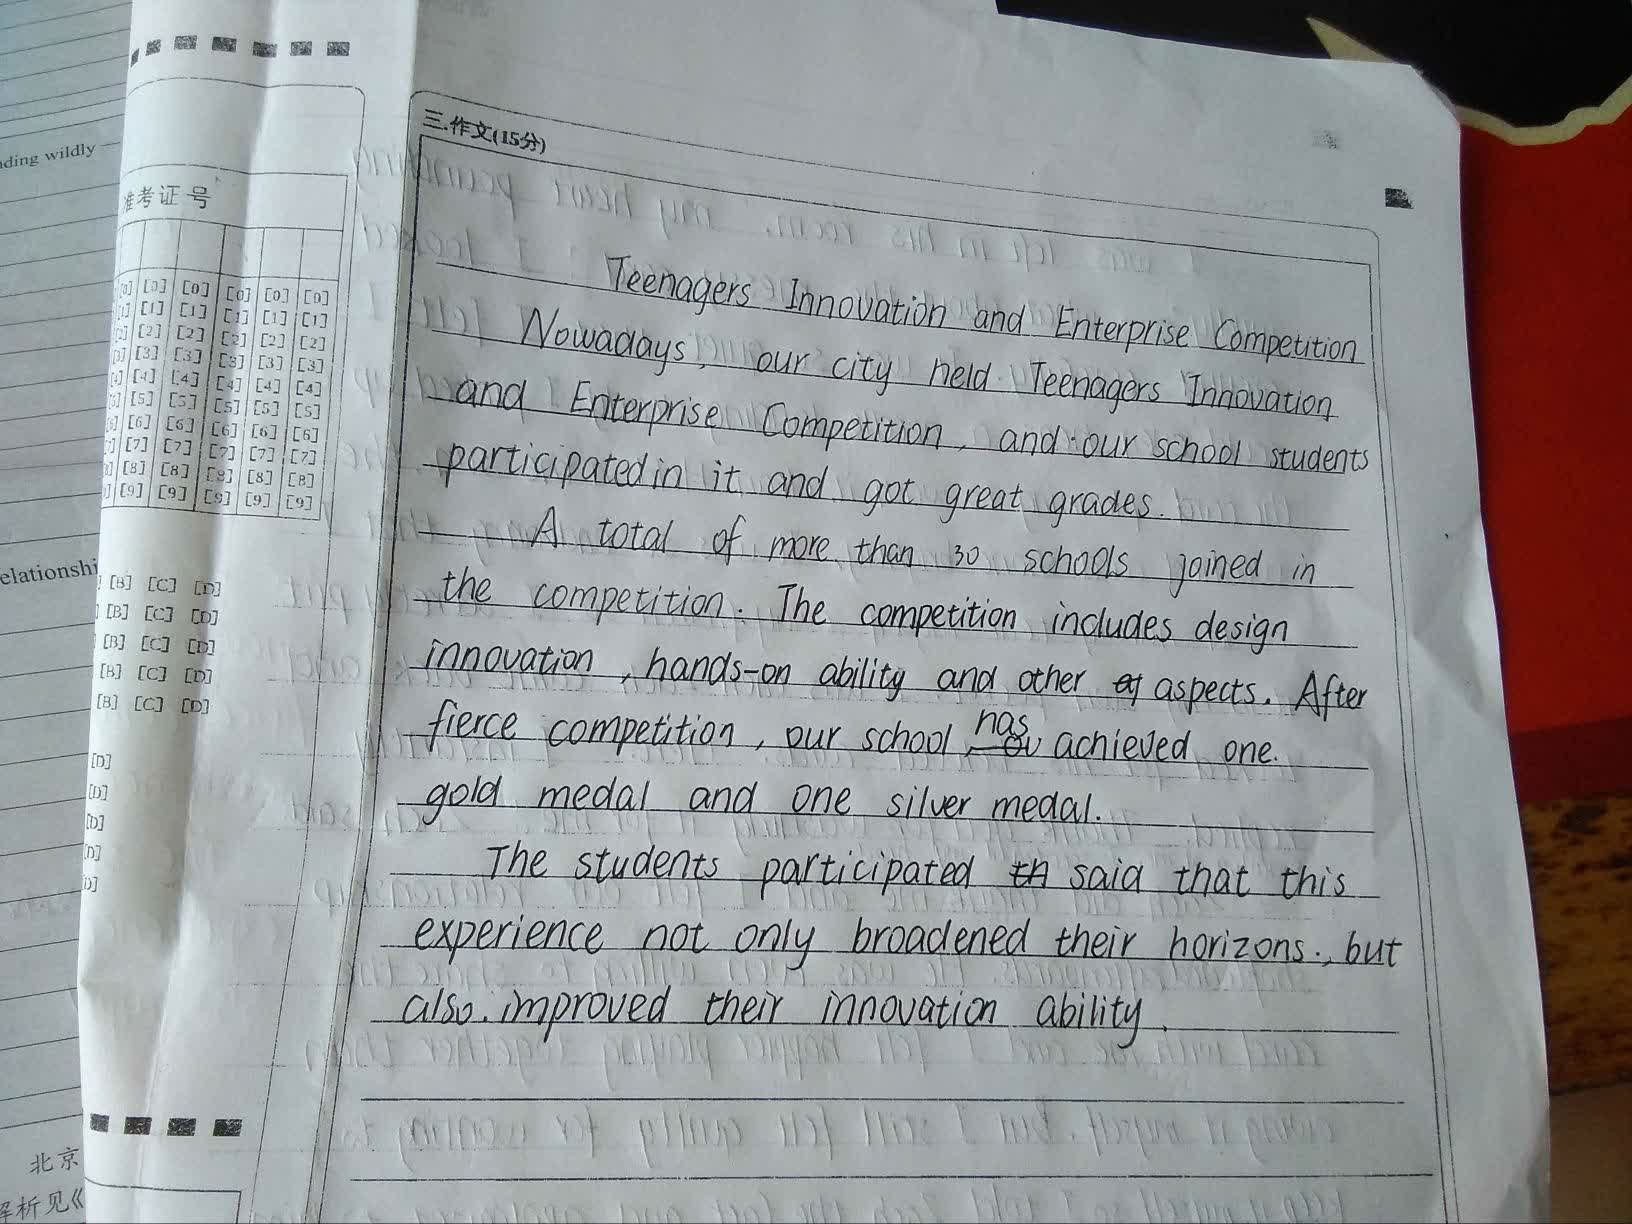 ding wildly —
准考证号
[0] [0] [0] [0] [0] [0]
[1] [1] [1] [1] [1] [1]
[2] [2] [2] [2] [2] [2]
[3] [3] [3] [3] [3] [3]
[4] [4] [4] [4] [4] [4]
[5] [5] [5] [5] [5] [5]
[6] [6] [6] [6] [6] [6]
[7] [7] [7] [7] [7] [7]
[8] [8] [8] [8] [8] [8]
[9] [9] [9] [9] [9] [9]
elationshi
[B] [C] [D]
[B] [C] [D]
[B] [C] [D]
[B] [C] [D]
[B] [C] [D]
[D]
[D]
[D]
[D]
[D]
北京
解析见《
三.作文(15分)
Teenagers Innovation and Enterprise Competition
Nowadays, our city held Teenagers Innovation
and Enterprise Competition, and our school students
participated in it and got great grades.
A total of more than 30 schools joined in
the competition. The competition includes design
innovation, hands-on ability and other aspects. After
fierce competition, our school has achieved one
gold medal and one silver medal.
The students participated said that this
experience not only broadened their horizons., but
also improved their innovation ability.